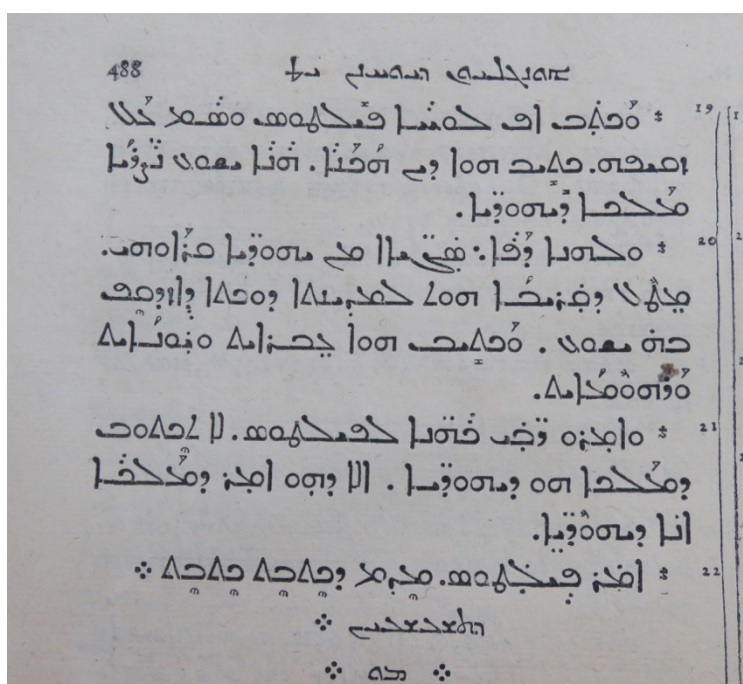 488 ܐܘܢܓܠܝܘܢ ܕܝܘܚܢܢ ܝܛ
19 ܘܟܬܒ ܐܦ ܠܘܚܐ ܦܝܠܛܘܣ ܘܣܡ ܥܠ
ܙܩܝܦܗ. ܟܬܝܒ ܗܘܐ ܕܝܢ ܗܟܢܐ. ܗܢܐ ܝܫܘܥ ܢܨܪܝܐ
ܡܠܟܐ ܕܝܗܘܕܝܐ.
20 ܘܠܗܢܐ ܕܦܐ: ܣܓܝܐܐ ܡܢ ܝܗܘܕܝܐ ܩܪܐܘܗܝ.
ܡܛܠ ܕܩܪܝܒܐ ܗܘܬ ܠܡܕܝܢܬܐ ܕܘܟܬܐ ܕܐܙܕܩܦ
ܒܗ ܝܫܘܥ. ܘܟܬܝܒ ܗܘܐ ܥܒܪܐܝܬ ܘܝܘܢܐܝܬ
ܘܪܗܘܡܐܝܬ.
21 ܘܐܡܪܘ ܪܒܝ ܟܗܢܐ ܠܦܝܠܛܘܣ. ܠܐ ܬܟܬܘܒ
ܕܡܠܟܐ ܗܘ ܕܝܗܘܕܝܐ. ܐܠܐ ܕܗܘ ܐܡܪ ܕܡܠܟܐ
ܐܢܐ ܕܝܗܘܕܝܐ.
22 ܐܡܪ ܦܝܠܛܘܣ. ܡܕܡ ܕܟܬܒܬ ܟܬܒܬ